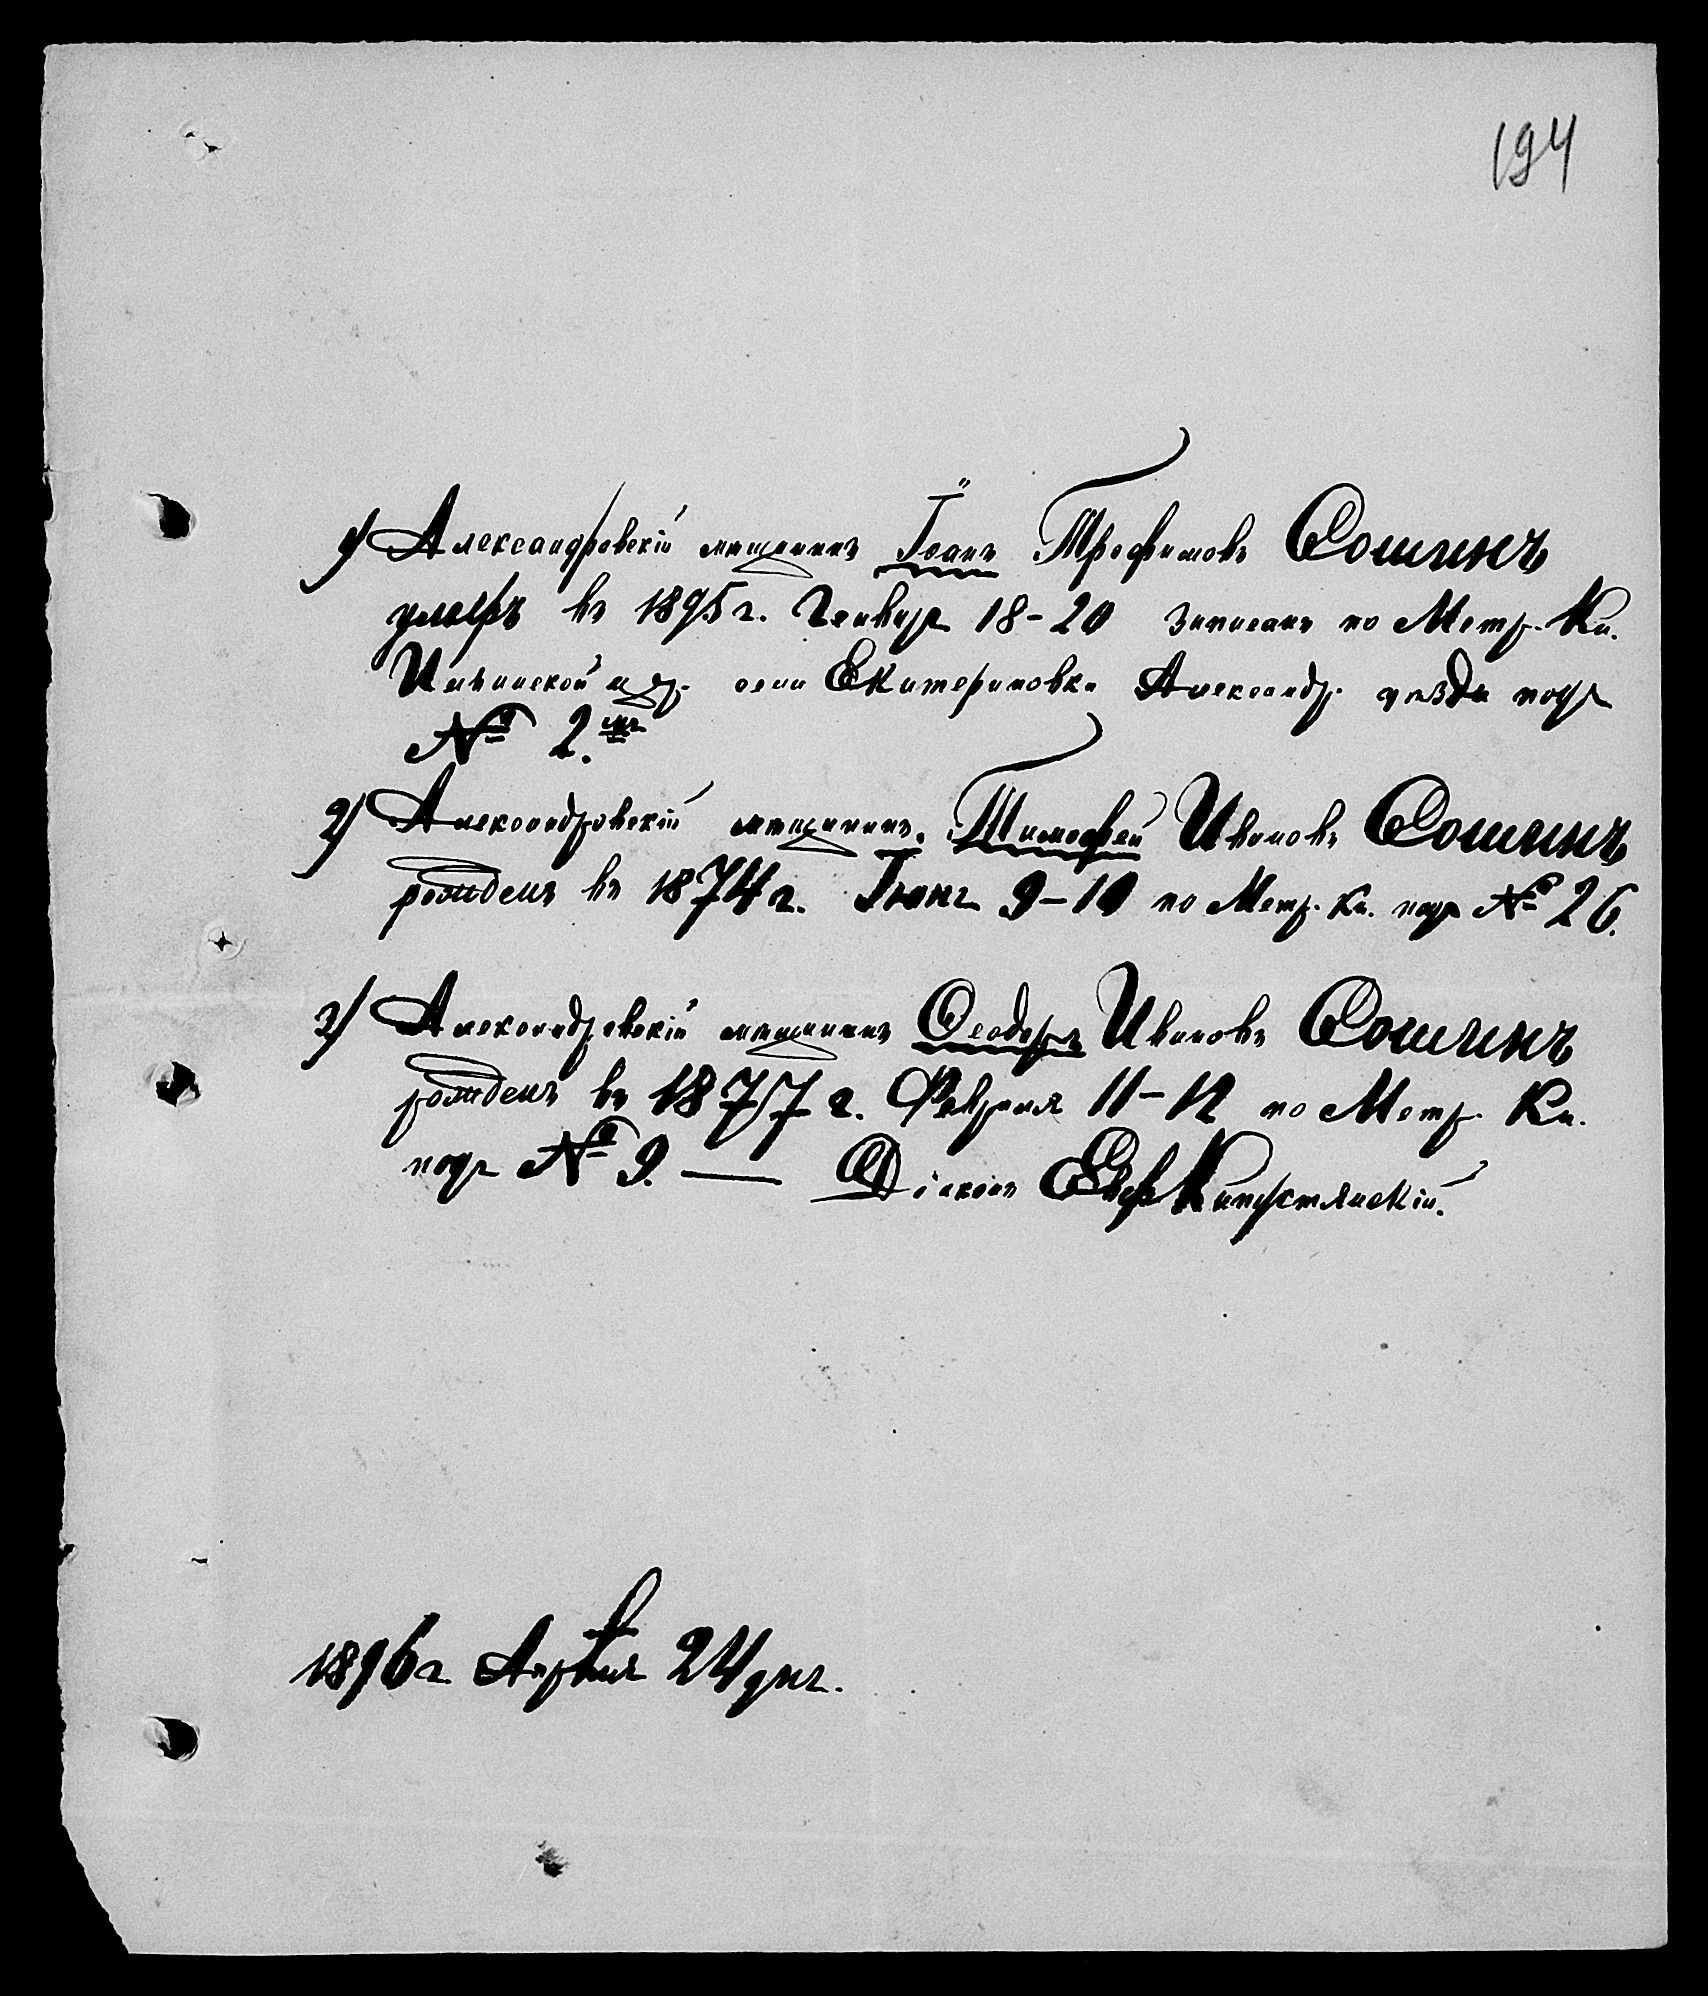 194
1) Александровскій мѣщанинъ Іоанъ Трофимовъ Сошинъ
умеръ въ 1895 г. Генваря 18-20 записанъ по Метр. Кн.
Ильинской цер. села Екатериновки Александр. уѣзда подъ
№ 2.мъ
2) Александровскій мѣщанинъ. Тимофей Ивановъ Сошинъ
рожденъ въ 1874 г. Іюня 9-10 по Метр. Кн. подъ № 26.
3) Александровскій мѣщанинъ Ѳеодоръ Ивановъ Сошинъ
рожденъ въ 1877 г. Февраля 11-12 по Метр. Кн.
подъ № 9. — Діаконъ
1896 г. Апрѣля 24 дня.